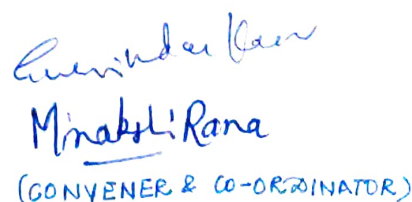 Gurvinder Kaur
Minakshi Rana
(CONVENER & CO-ORDINATOR)